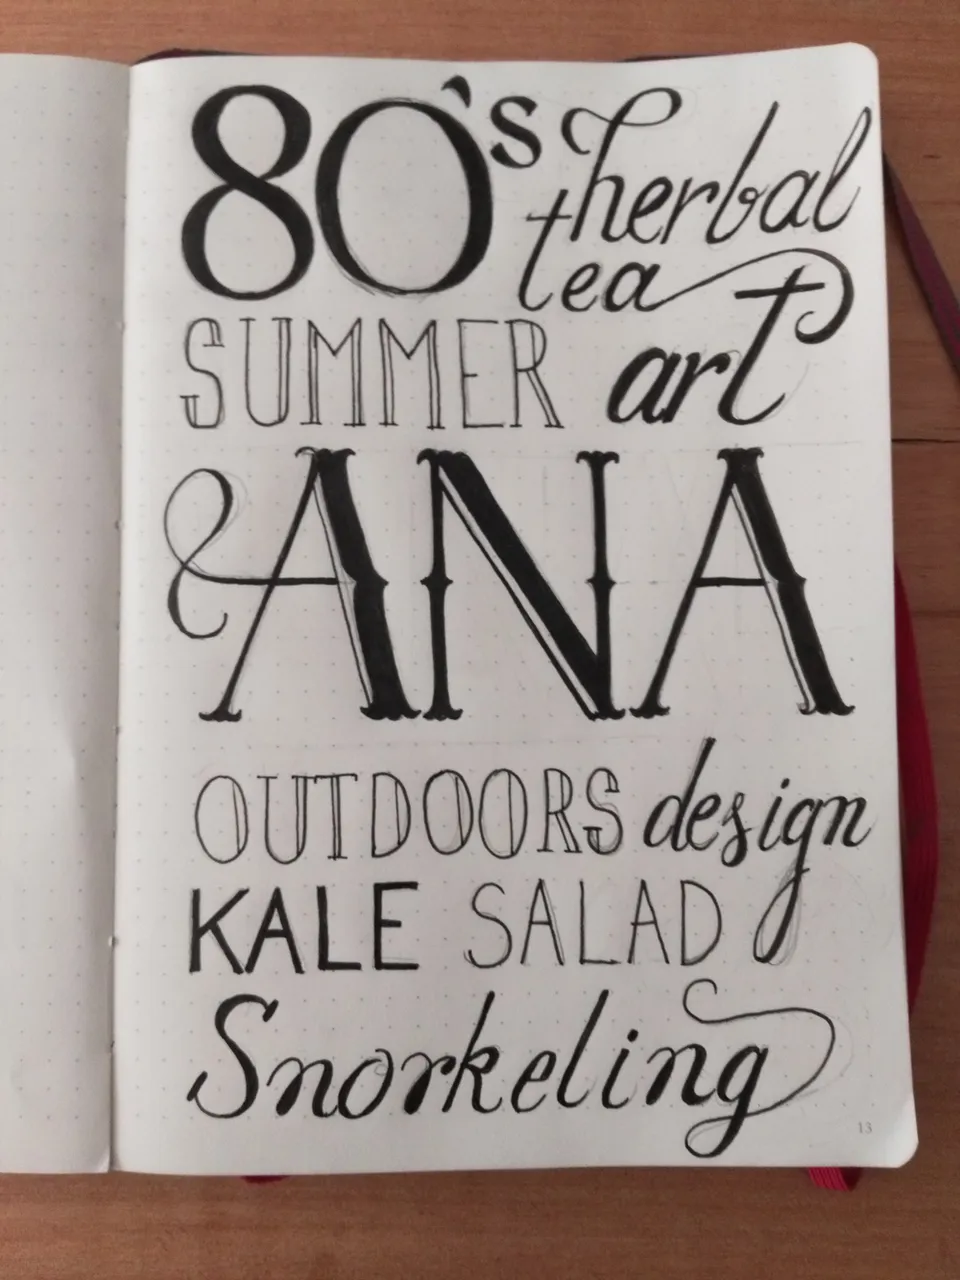 80's herbal
tea
SUMMER art
ANA
OUTDOORS design
KALE SALAD
Snorkeling
13